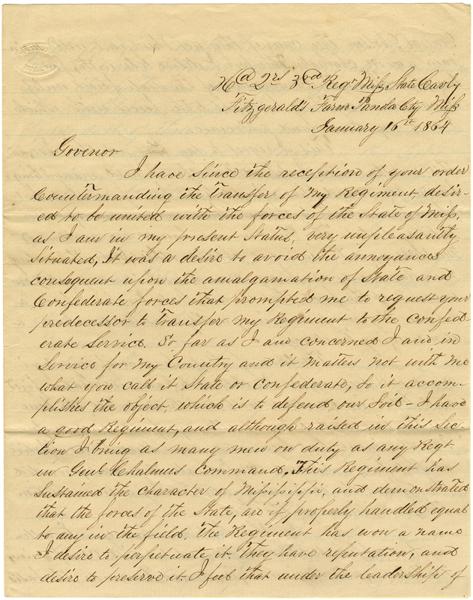 Hd Qrs 3rd Regt Miss State Cavly
Fitzgerald's Farm Panola Cty Miss
January 16th 1864
Govenor
I have since the reception of your order
Countermanding the transfer of my Regiment, desir-
ed to be united with the forces of the State of Miss,
as I am in my present status, very unpleasantly
situated, It was a desire to avoid the annoyances
consequent upon the amalgamation of State and
Confederate forces that prompted me to request your
predecessor to transfer my Regiment to the Confed-
erate service. So far as I am concerned I am in
service for my Country and it matters not with me
what you call it State or Confederate, so it accom-
plishes the object, which is to defend our Soil – I have
a good Regiment, and although raised in this Sec-
tion I bring as many men on duty as any Regt
in Genl Chalmers Command. This Regiment has
Sustained the character of Mississippi, and demonstrated
that the forces of the State, are if properly handled equal
to any in the field. The Regiment has won a name
I desire to perpetuate it. They have reputation, and
desire to preserve it. I feel that under the leadership of